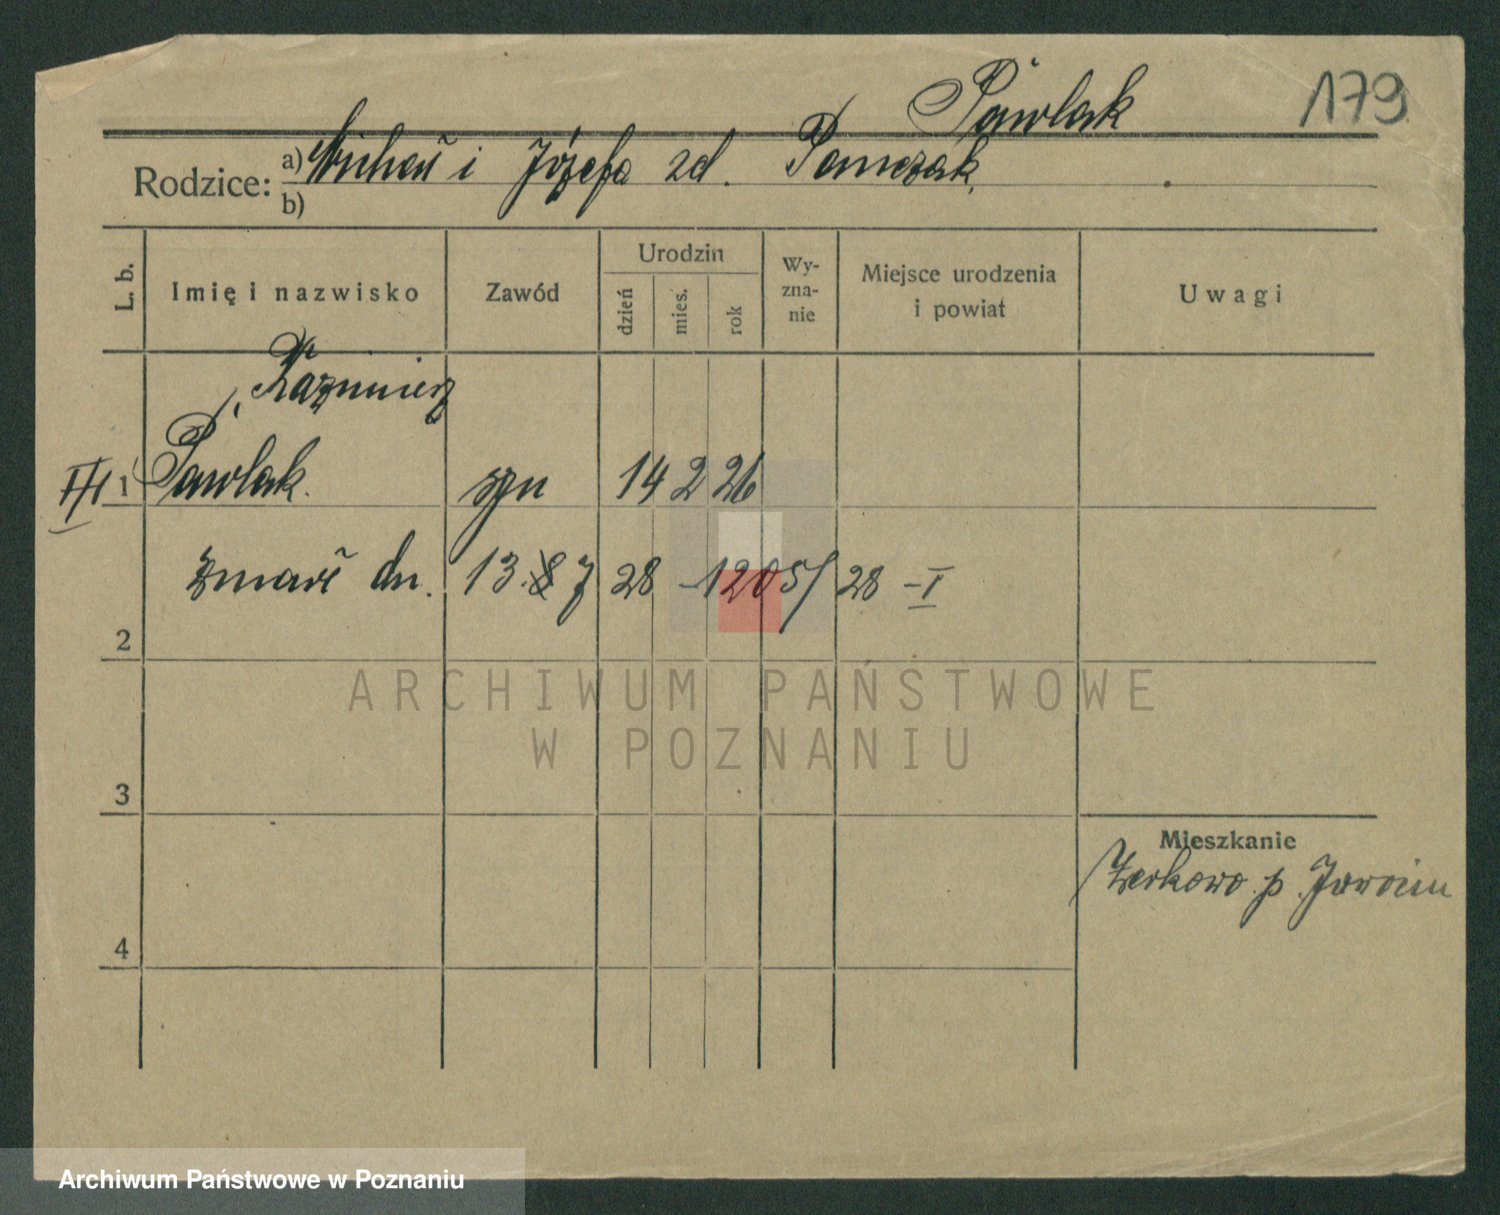 Pawlak
179
Rodzice: a) Michał i Józefa zd. Pomczak
b)
L. b. Imię i nazwisko Zawód Urodzin dzień mies. rok Wyznanie Miejsce urodzenia i powiat Uwagi
Kazimierz
III 1 Pawlak. syn 14 2 26
zmarł dn. 13. 8 7 28 - 1205/28 - I
2
ARCHIWUM PAŃSTWOWE
W POZNANIU
3
Mieszkanie
Żerkowo p. Jarocin
4
Archiwum Państwowe w Poznaniu